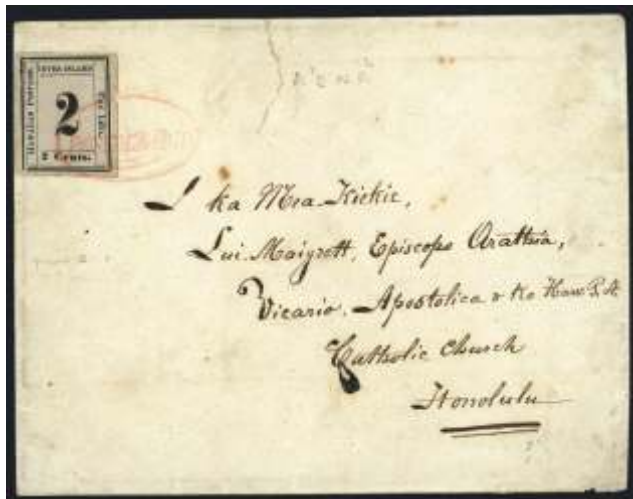 INTER ISLAND
Hawaiian Postage.
2
2 Cents.
I ka Mea Kiekie,
Lui Maigrett, Episcopo Arathia,
Vicario Apostolica o ko Haw P. A.
Catholic Church
Honolulu